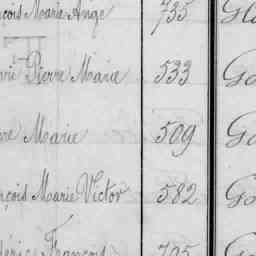 çois Marie Ange 735 Ga
Pierre Marie 533 Ga
re Marie 509 Ga
nçois Marie Victor 582 Ga
François 705 Ga